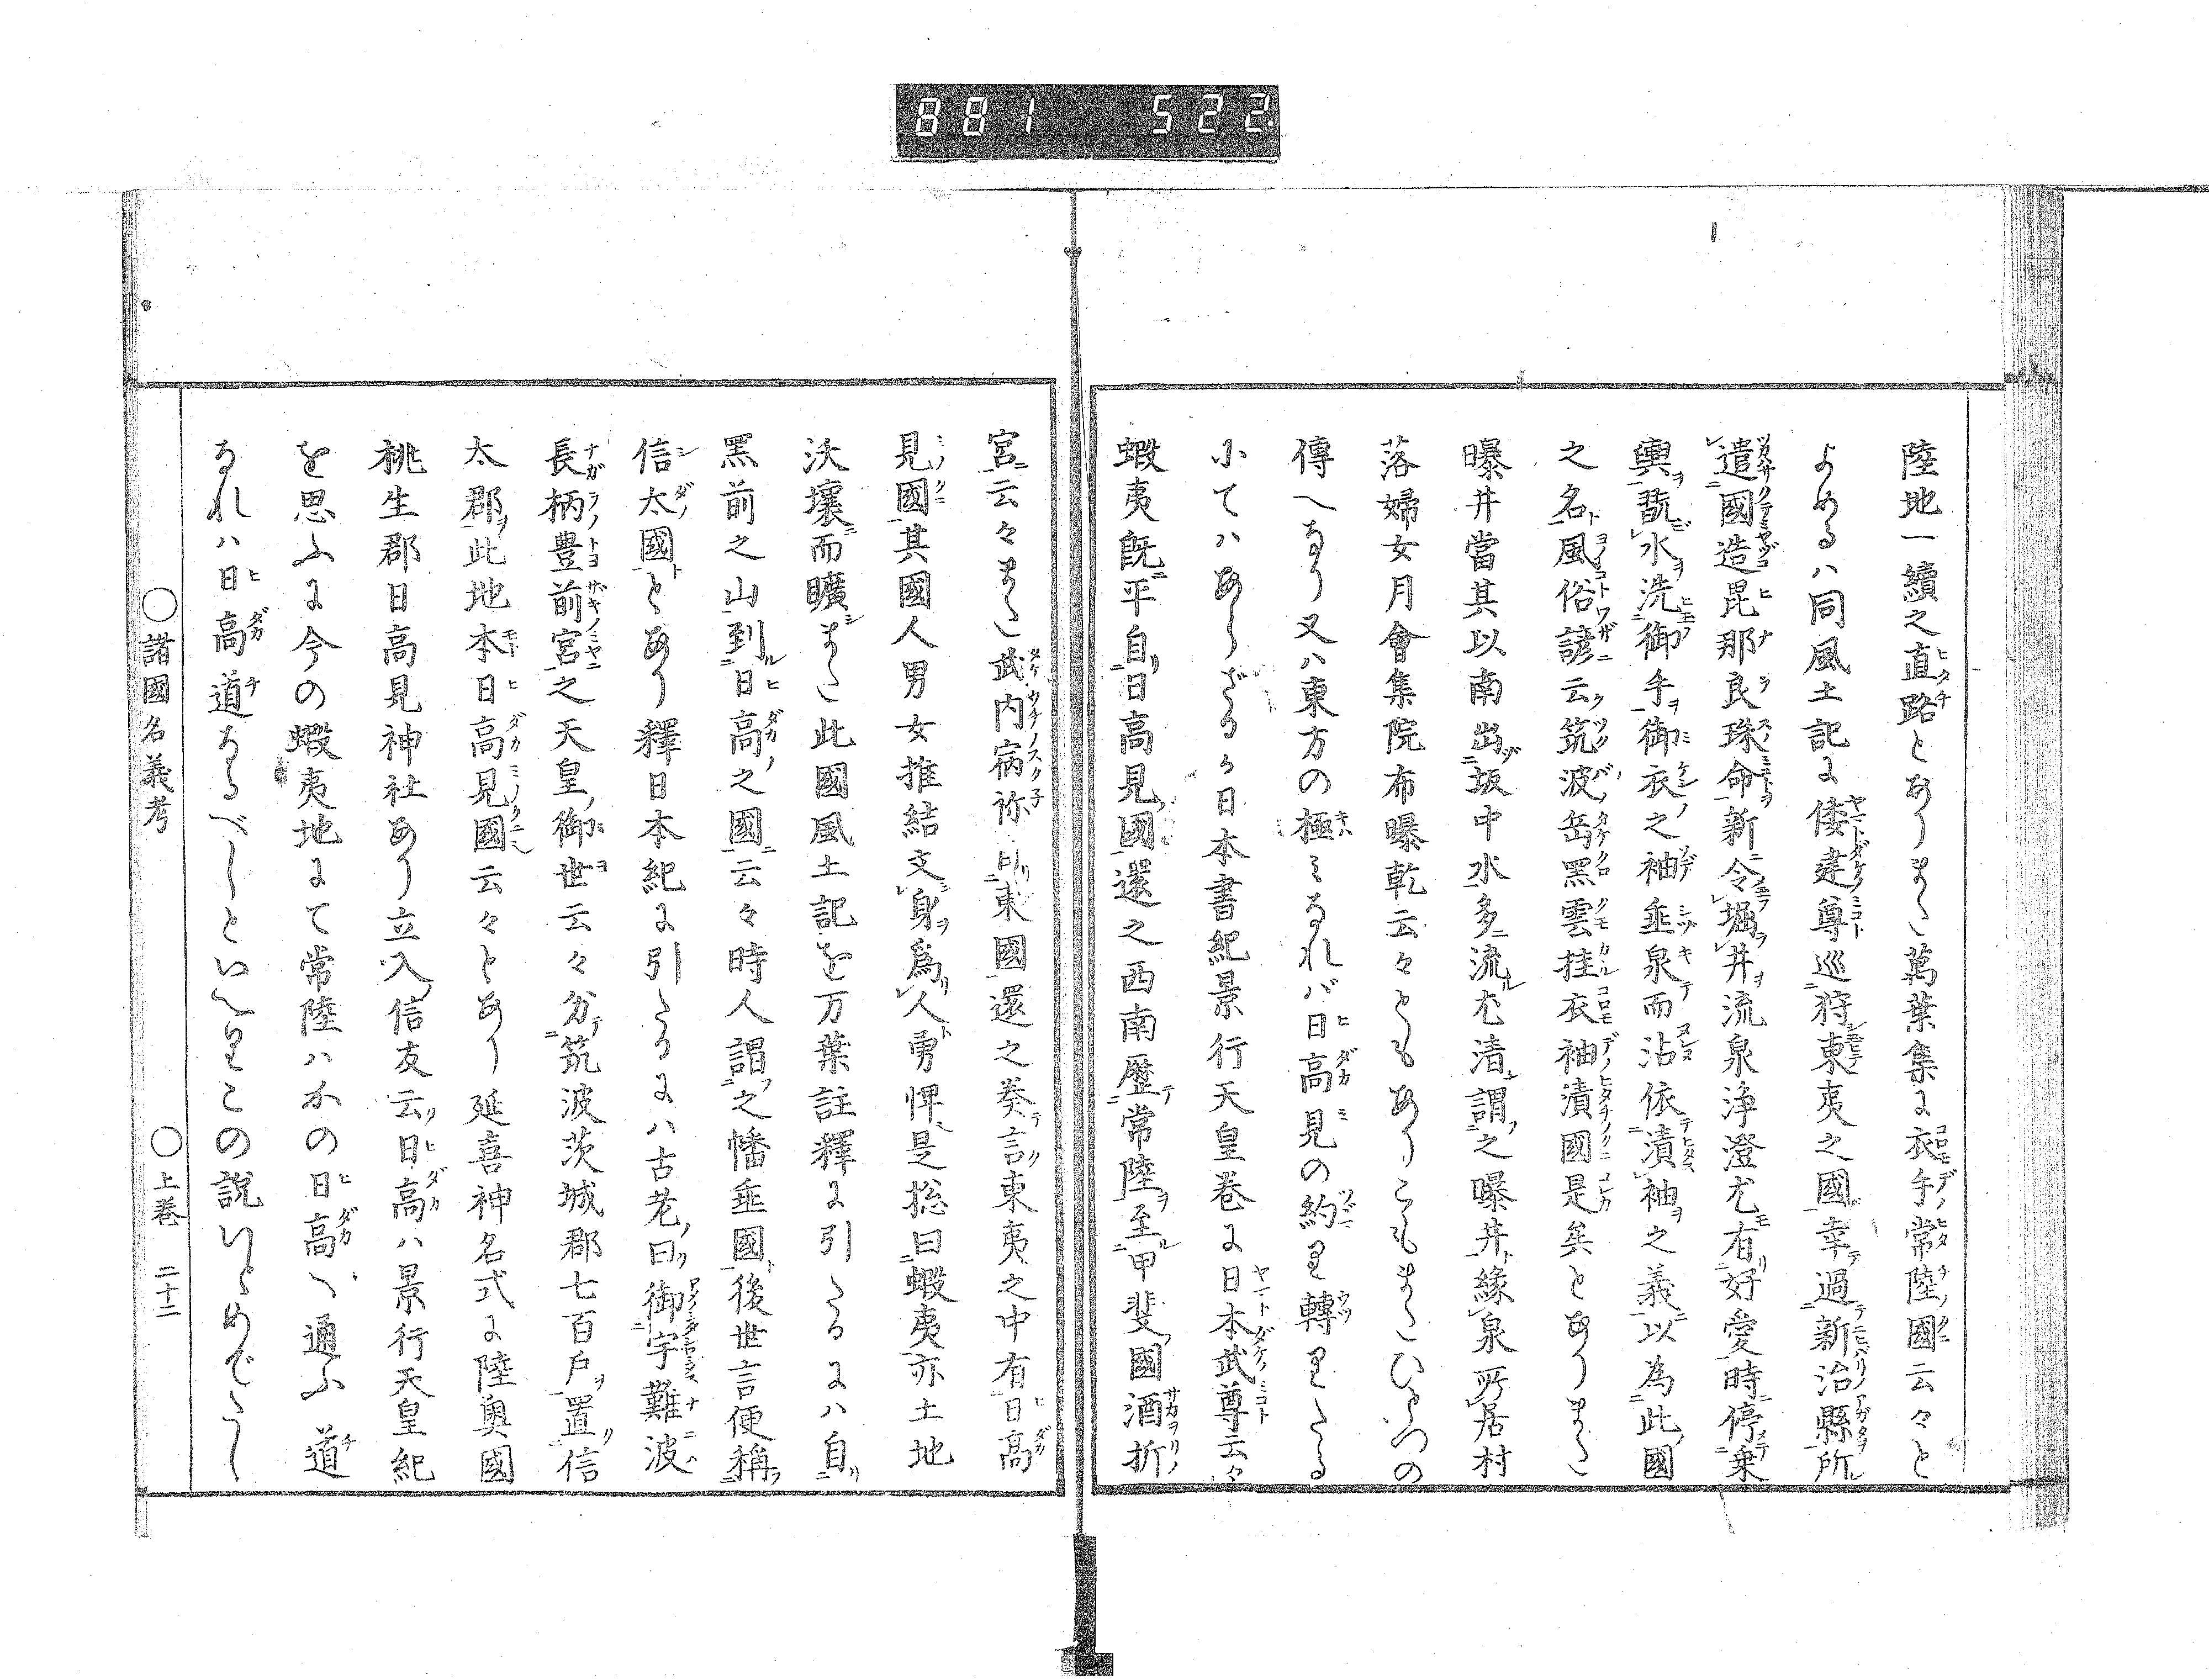 881 522
陸地一續之直路とありまた萬葉集に衣手常陸國云々と
よめるハ同風土記に倭建尊巡狩東夷之國幸過新治縣所
遣國造毘那良珠命新令堀井流泉浄澄尤有好愛時停乗
輿翫水洗御手御衣之袖垂泉而沾依漬袖之義以為此國
之名風俗諺云筑波岳黒雲挂衣袖漬國是矣とありまた
曝井當其以南出坂中水多流尤清謂之曝井縁泉所居村
落婦女月會集院布曝乾云々ともありこもまたひとつの
傳へなり又ハ東方の極ミなれバ日高見の約り轉りたる
にてハあらざるか日本書紀景行天皇巻に日本武尊云々
蝦夷既平自日高見國還之西南歴常陸至甲斐國酒折
宮云々また武内宿祢自東國還之奏言東夷之中有日高
見國其國人男女推結文身爲人勇悍是捴曰蝦夷亦土地
沃壤而曠また此國風土記を万葉註釋に引たるにハ自
黒前之山到日高之國云々時人謂之幡垂國後世言便稱
信太國とあり釋日本紀に引たるにハ古老曰御宇難波
長柄豊前宮之天皇御世云々分筑波茨城郡七百戸置信
太郡此地本日高見國云々とあり延喜神名式に陸奥國
桃生郡日高見神社あり立入信友云日高ハ景行天皇紀
を思ふに今の蝦夷地にて常陸ハかの日高へ通ふ道
なれハ日高道なるべしといへりこの説いとめでたし
○諸國名義考 ○上巻 二十二